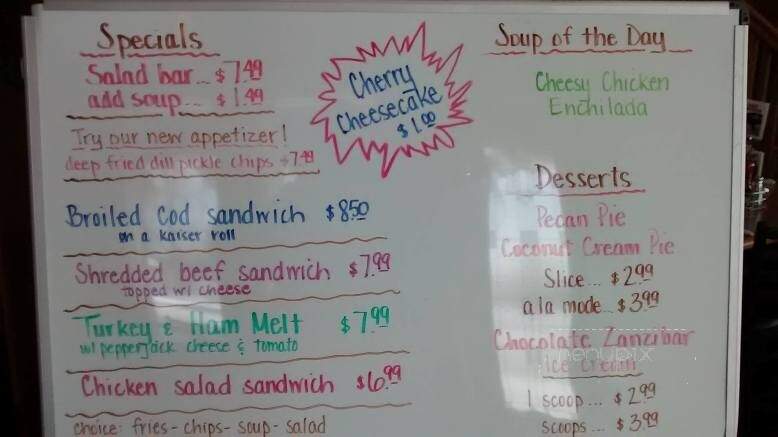 Specials
Salad bar... $7.49
add soup... $1.49
Try our new appetizer!
deep fried dill pickle chips $7.49
Cherry
Cheesecake
$1.00
Broiled Cod sandwich $8.50
on a kaiser roll
Shredded beef sandwich $7.99
topped w/ cheese
Turkey & Ham Melt $7.99
w/ pepperjack cheese & tomato
Chicken salad sandwich $6.99
choice: fries - chips - soup - salad
Soup of the Day
Cheesy Chicken
Enchilada
Desserts
Pecan Pie
Coconut Cream Pie
Slice... $2.99
a la mode... $3.99
Chocolate Zanzibar
Ice Cream
menupix
1 scoop... $2.99
scoops... $3.99